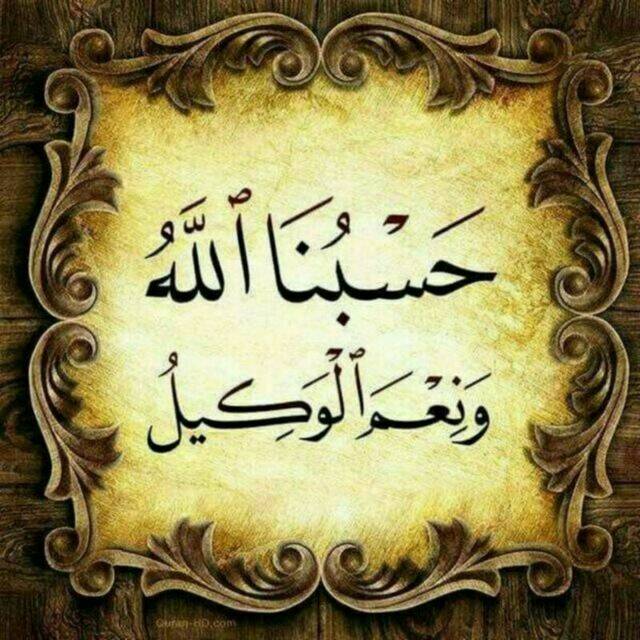 حَسْبُنَا ٱللَّهُ
وَنِعْمَ ٱلْوَكِيلُ
Quran-HD.com